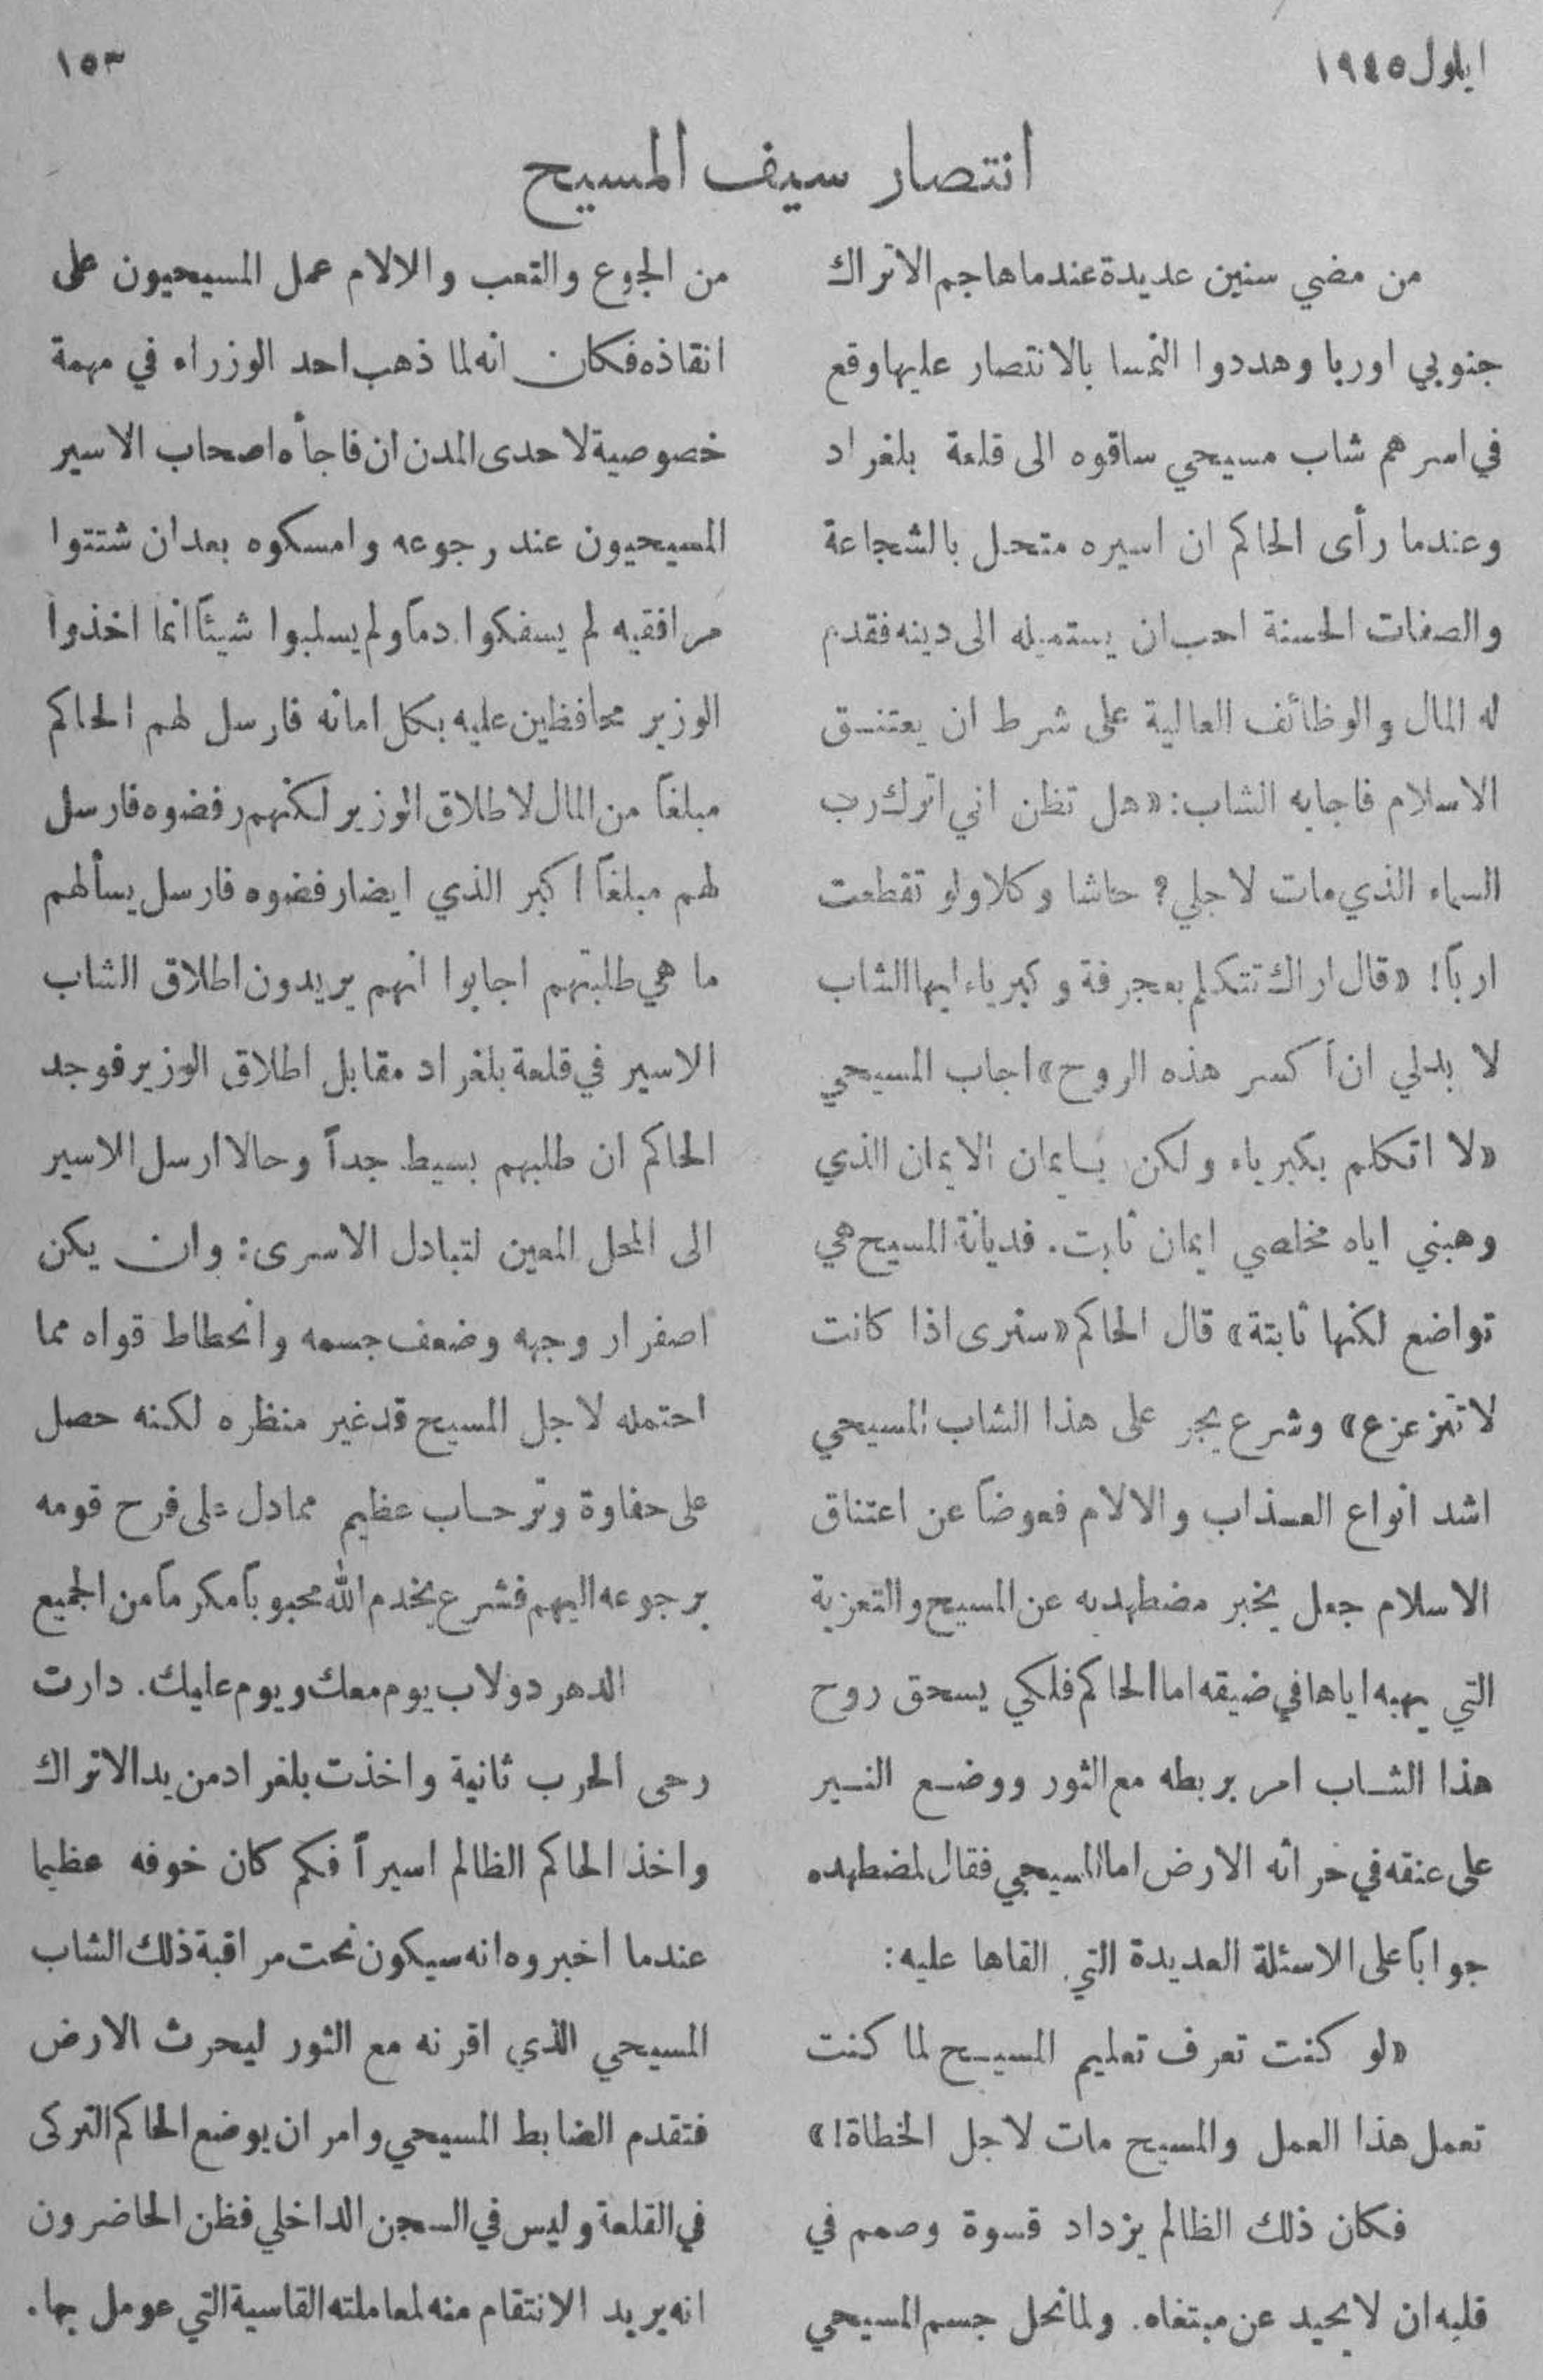 ايلول ١٩٤٥
١٥٣
انتصار سيف المسيح
من مضي سنين عديدة عندما هاجم الاتراك
جنوبي اوربا وهددوا النمسا بالانتصار عليها وقع
في اسرهم شاب مسيحي ساقوه الى قلعة بلغراد
وعندما رأى الحاكم ان اسيره متحل بالشجاعة
والصفات الحسنة احب ان يستميله الى دينه فقدم
له المال والوظائف العالية على شرط ان يعتنق
الاسلام فاجابه الشاب: «هل تظن اني اترك رب
السماء الذي مات لاجلي? حاشا وكلا ولو تقطعت
ارباً! «قال اراك تتكلم بعجرفة وكبرياء ايها الشاب
لا بد لي ان اكسر هذه الروح» اجاب المسيحي
«لا اتكلم بكبرياء ولكن بايمان الايمان الذي
وهبني اياه مخلصي ايمان ثابت. فديانة المسيح هي
تواضع لكنها ثابتة» قال الحاكم «سنرى اذا كانت
لا تتزعزع» وشرع يجر على هذا الشاب المسيحي
اشد انواع العذاب والالام فعوضاً عن اعتناق
الاسلام جعل يخبر مضطهديه عن المسيح والتعزية
التي يهبه اياها في ضيقه اما الحاكم فلكي يسحق روح
هذا الشاب امر بربطه مع الثور ووضع النير
على عنقه في حراثه الارض اما المسيحي فقال لمضطهده
جواباً على الاسئلة العديدة التي القاها عليه:
«لو كنت تعرف تعليم المسيح لما كنت
تعمل هذا العمل والمسيح مات لاجل الخطاة!»
فكان ذلك الظالم يزداد قسوة وصمم في
قلبه ان لا يحيد عن مبتغاه. ولما نحل جسم المسيحي
من الجوع والتعب والالام عمل المسيحيون على
انقاذه فكان انه لما ذهب احد الوزراء في مهمة
خصوصية لاحدى المدن ان فاجأه اصحاب الاسير
المسيحيون عند رجوعه وامسكوه بعد ان شتتوا
مرافقيه لم يسفكوا دماً ولم يسلبوا شيئاً انما اخذوا
الوزير محافظين عليه بكل امانه فارسل لهم الحاكم
مبلغاً من المال لاطلاق الوزير لكنهم رفضوه فارسل
لهم مبلغاً اكبر الذي ايضا رفضوه فارسل يسألهم
ما هي طلبتهم اجابوا انهم يريدون اطلاق الشاب
الاسير في قلعة بلغراد مقابل اطلاق الوزير فوجد
الحاكم ان طلبهم بسيط جداً وحالا ارسل الاسير
الى المحل المعين لتبادل الاسرى: وان يكن
اصفرار وجهه وضعف جسمه وانحطاط قواه مما
احتمله لاجل المسيح قد غير منظره لكنه حصل
على حفاوة وترحاب عظيم مما دل على فرح قومه
برجوعه اليهم فشرع يخدم الله محبوباً مكرماً من الجميع
الدهر دولاب يوم معك ويوم عليك. دارت
رحى الحرب ثانية واخذت بلغراد من يد الاتراك
واخذ الحاكم الظالم اسيراً فكم كان خوفه عظيما
عندما اخبروه انه سيكون تحت مراقبة ذلك الشاب
المسيحي الذي اقرنه مع الثور ليحرث الارض
فتقدم الضابط المسيحي وامر ان يوضع الحاكم التركى
في القلعة وليس في السجن الداخلي فظن الحاضرون
انه يريد الانتقام منه لمعاملته القاسية التي عومل بها.